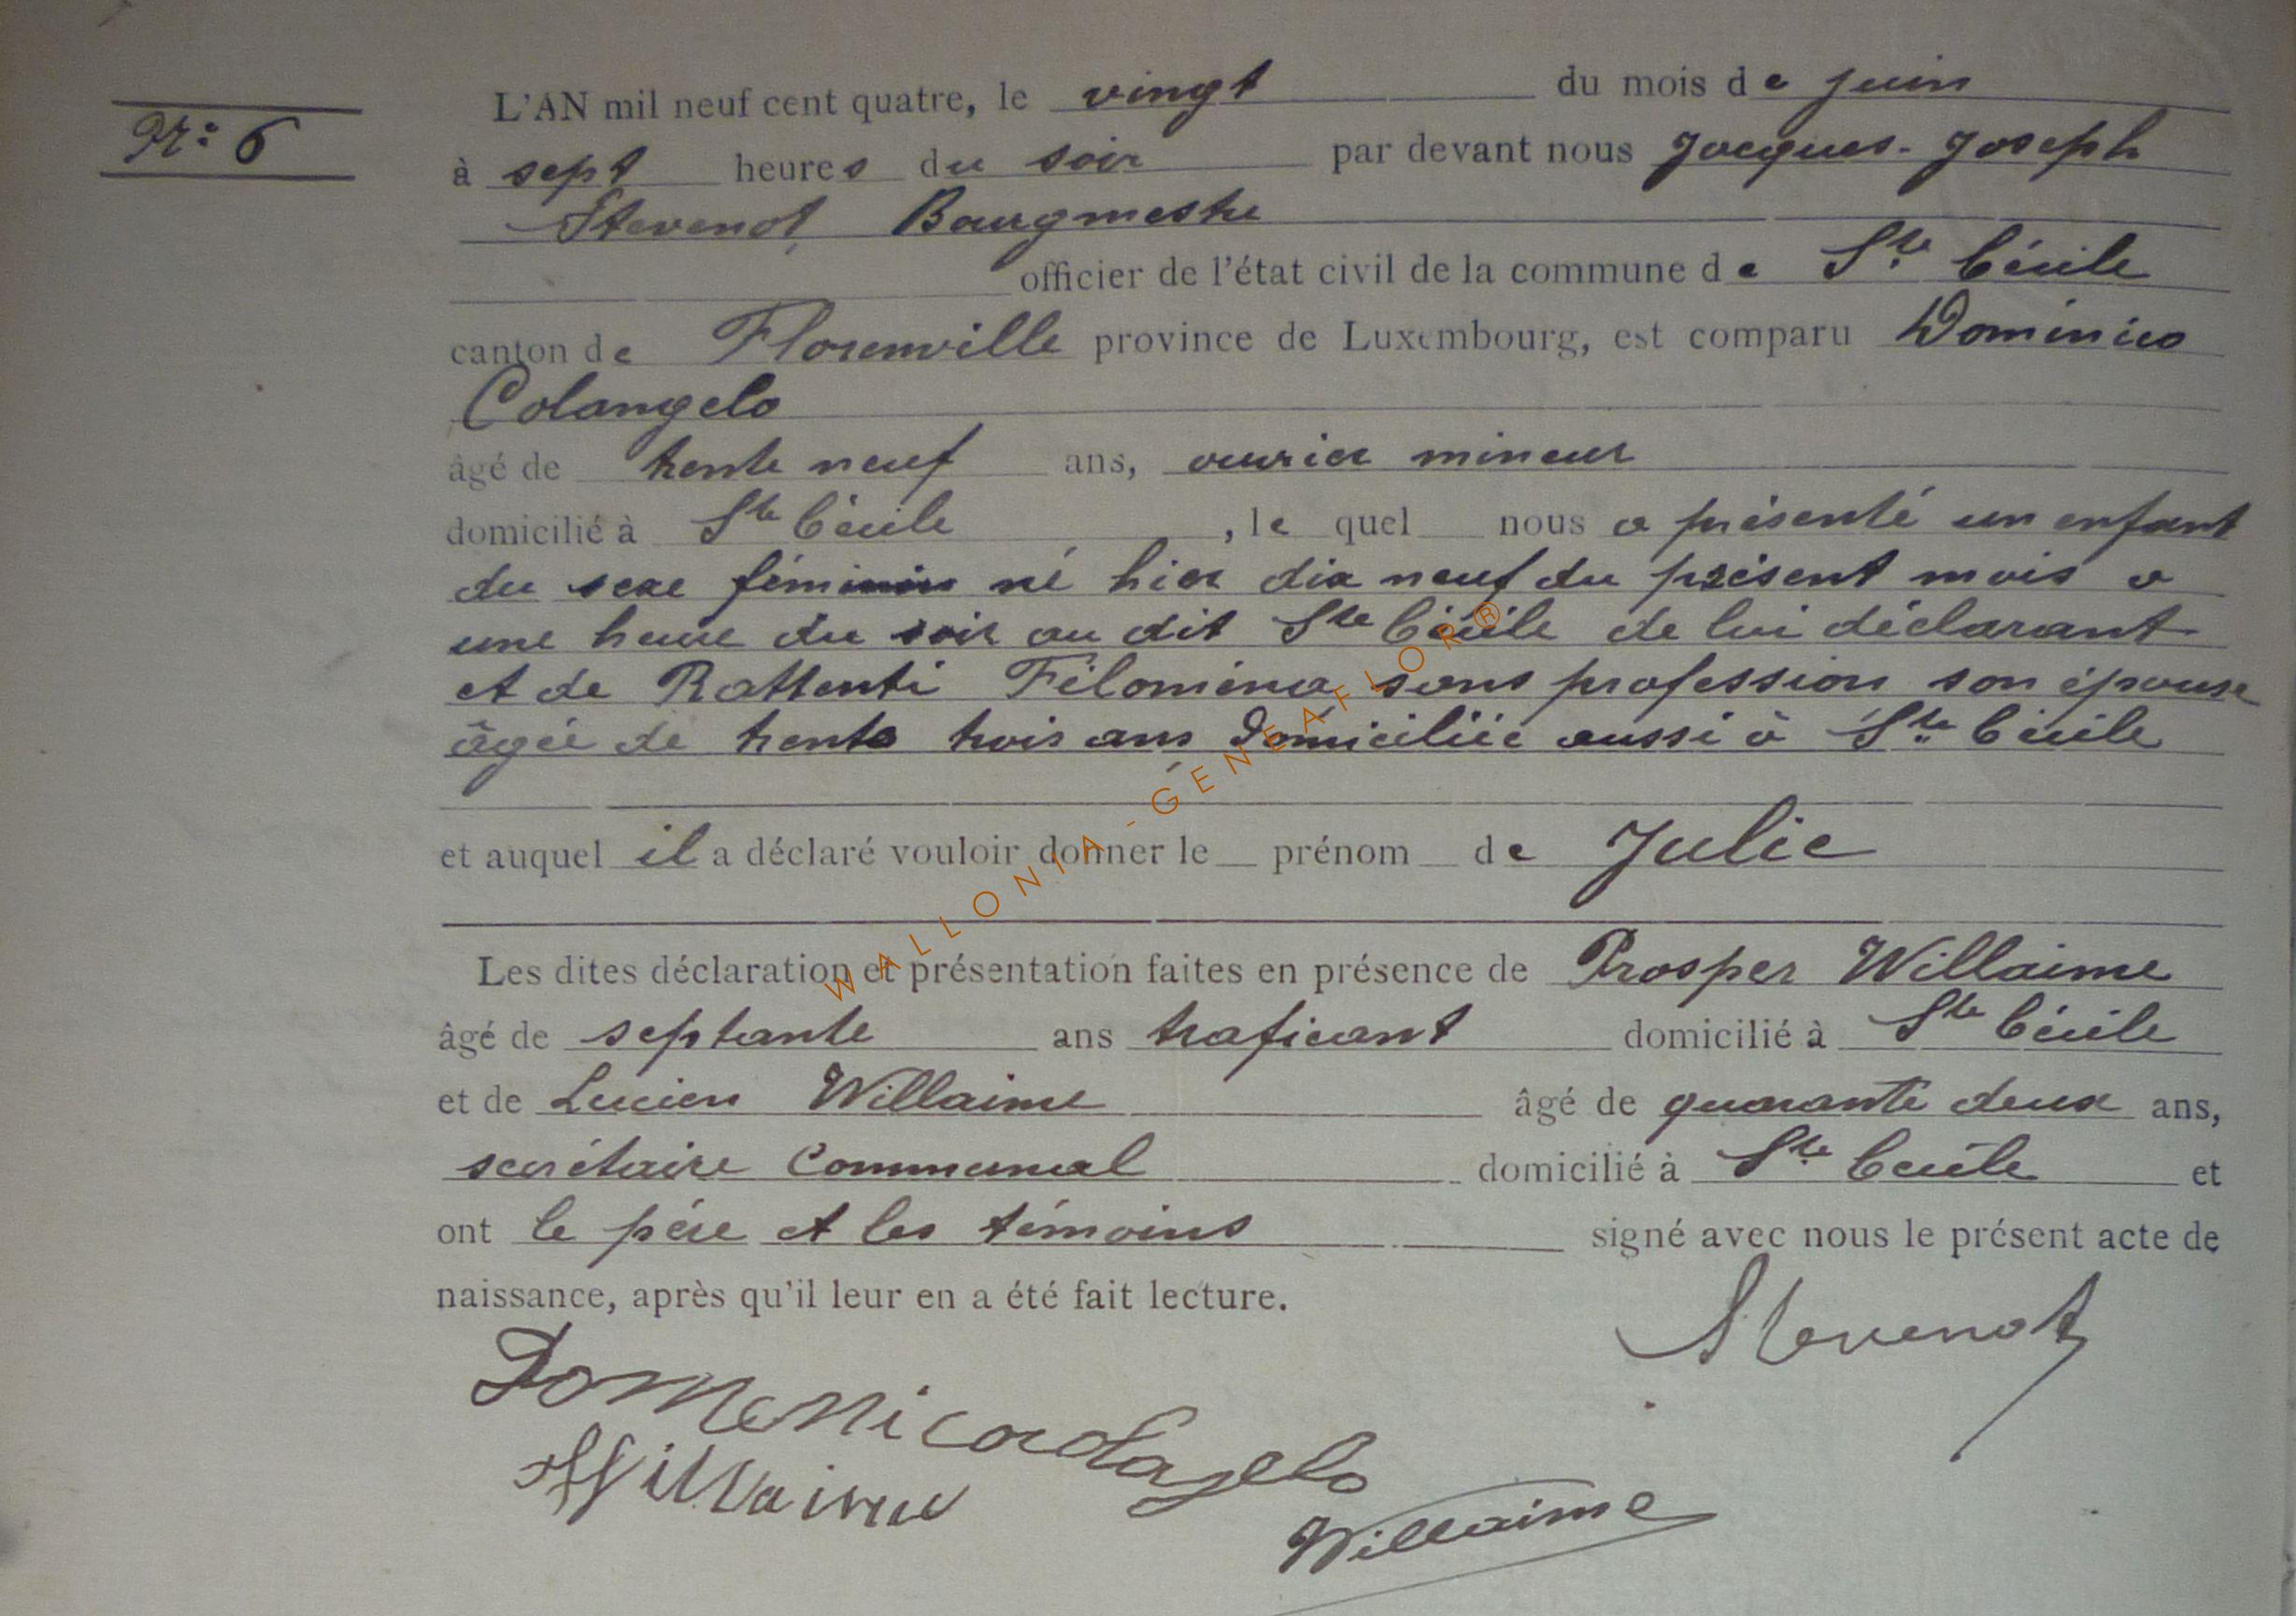 N°: 6
L'AN mil neuf cent quatre, le vingt du mois de juin
à sept heures du soir par devant nous Jacques-Joseph
Stevenot, Bourgmestre
officier de l'état civil de la commune de Ste Cécile
canton de Florenville province de Luxembourg, est comparu Dominico
Colangelo
âgé de trente neuf ans, ouvrier mineur
domicilié à Ste Cécile, le quel nous a présenté un enfant
du sexe féminin né hier dix neuf du présent mois a
une heure du soir au dit Ste Cécile de lui déclarant
et de Rattenti Filoména, sans profession son épouse
âgée de trente trois ans, domiciliée aussi à Ste Cécile
et auquel il a déclaré vouloir donner le prénom de Julie
Les dites déclaration et présentation faites en présence de Prosper Willaime
âgé de septante ans traficant domicilié à Ste Cécile
et de Lucien Willaime âgé de quarante deux ans,
secrétaire Communal domicilié à Ste Cécile et
ont le père et les témoins signé avec nous le présent acte de
naissance, après qu'il leur en a été fait lecture.
Stevenot
Domenico Colagelo
Willaime
Willaime
WALLONIA-GENEAFLOR®